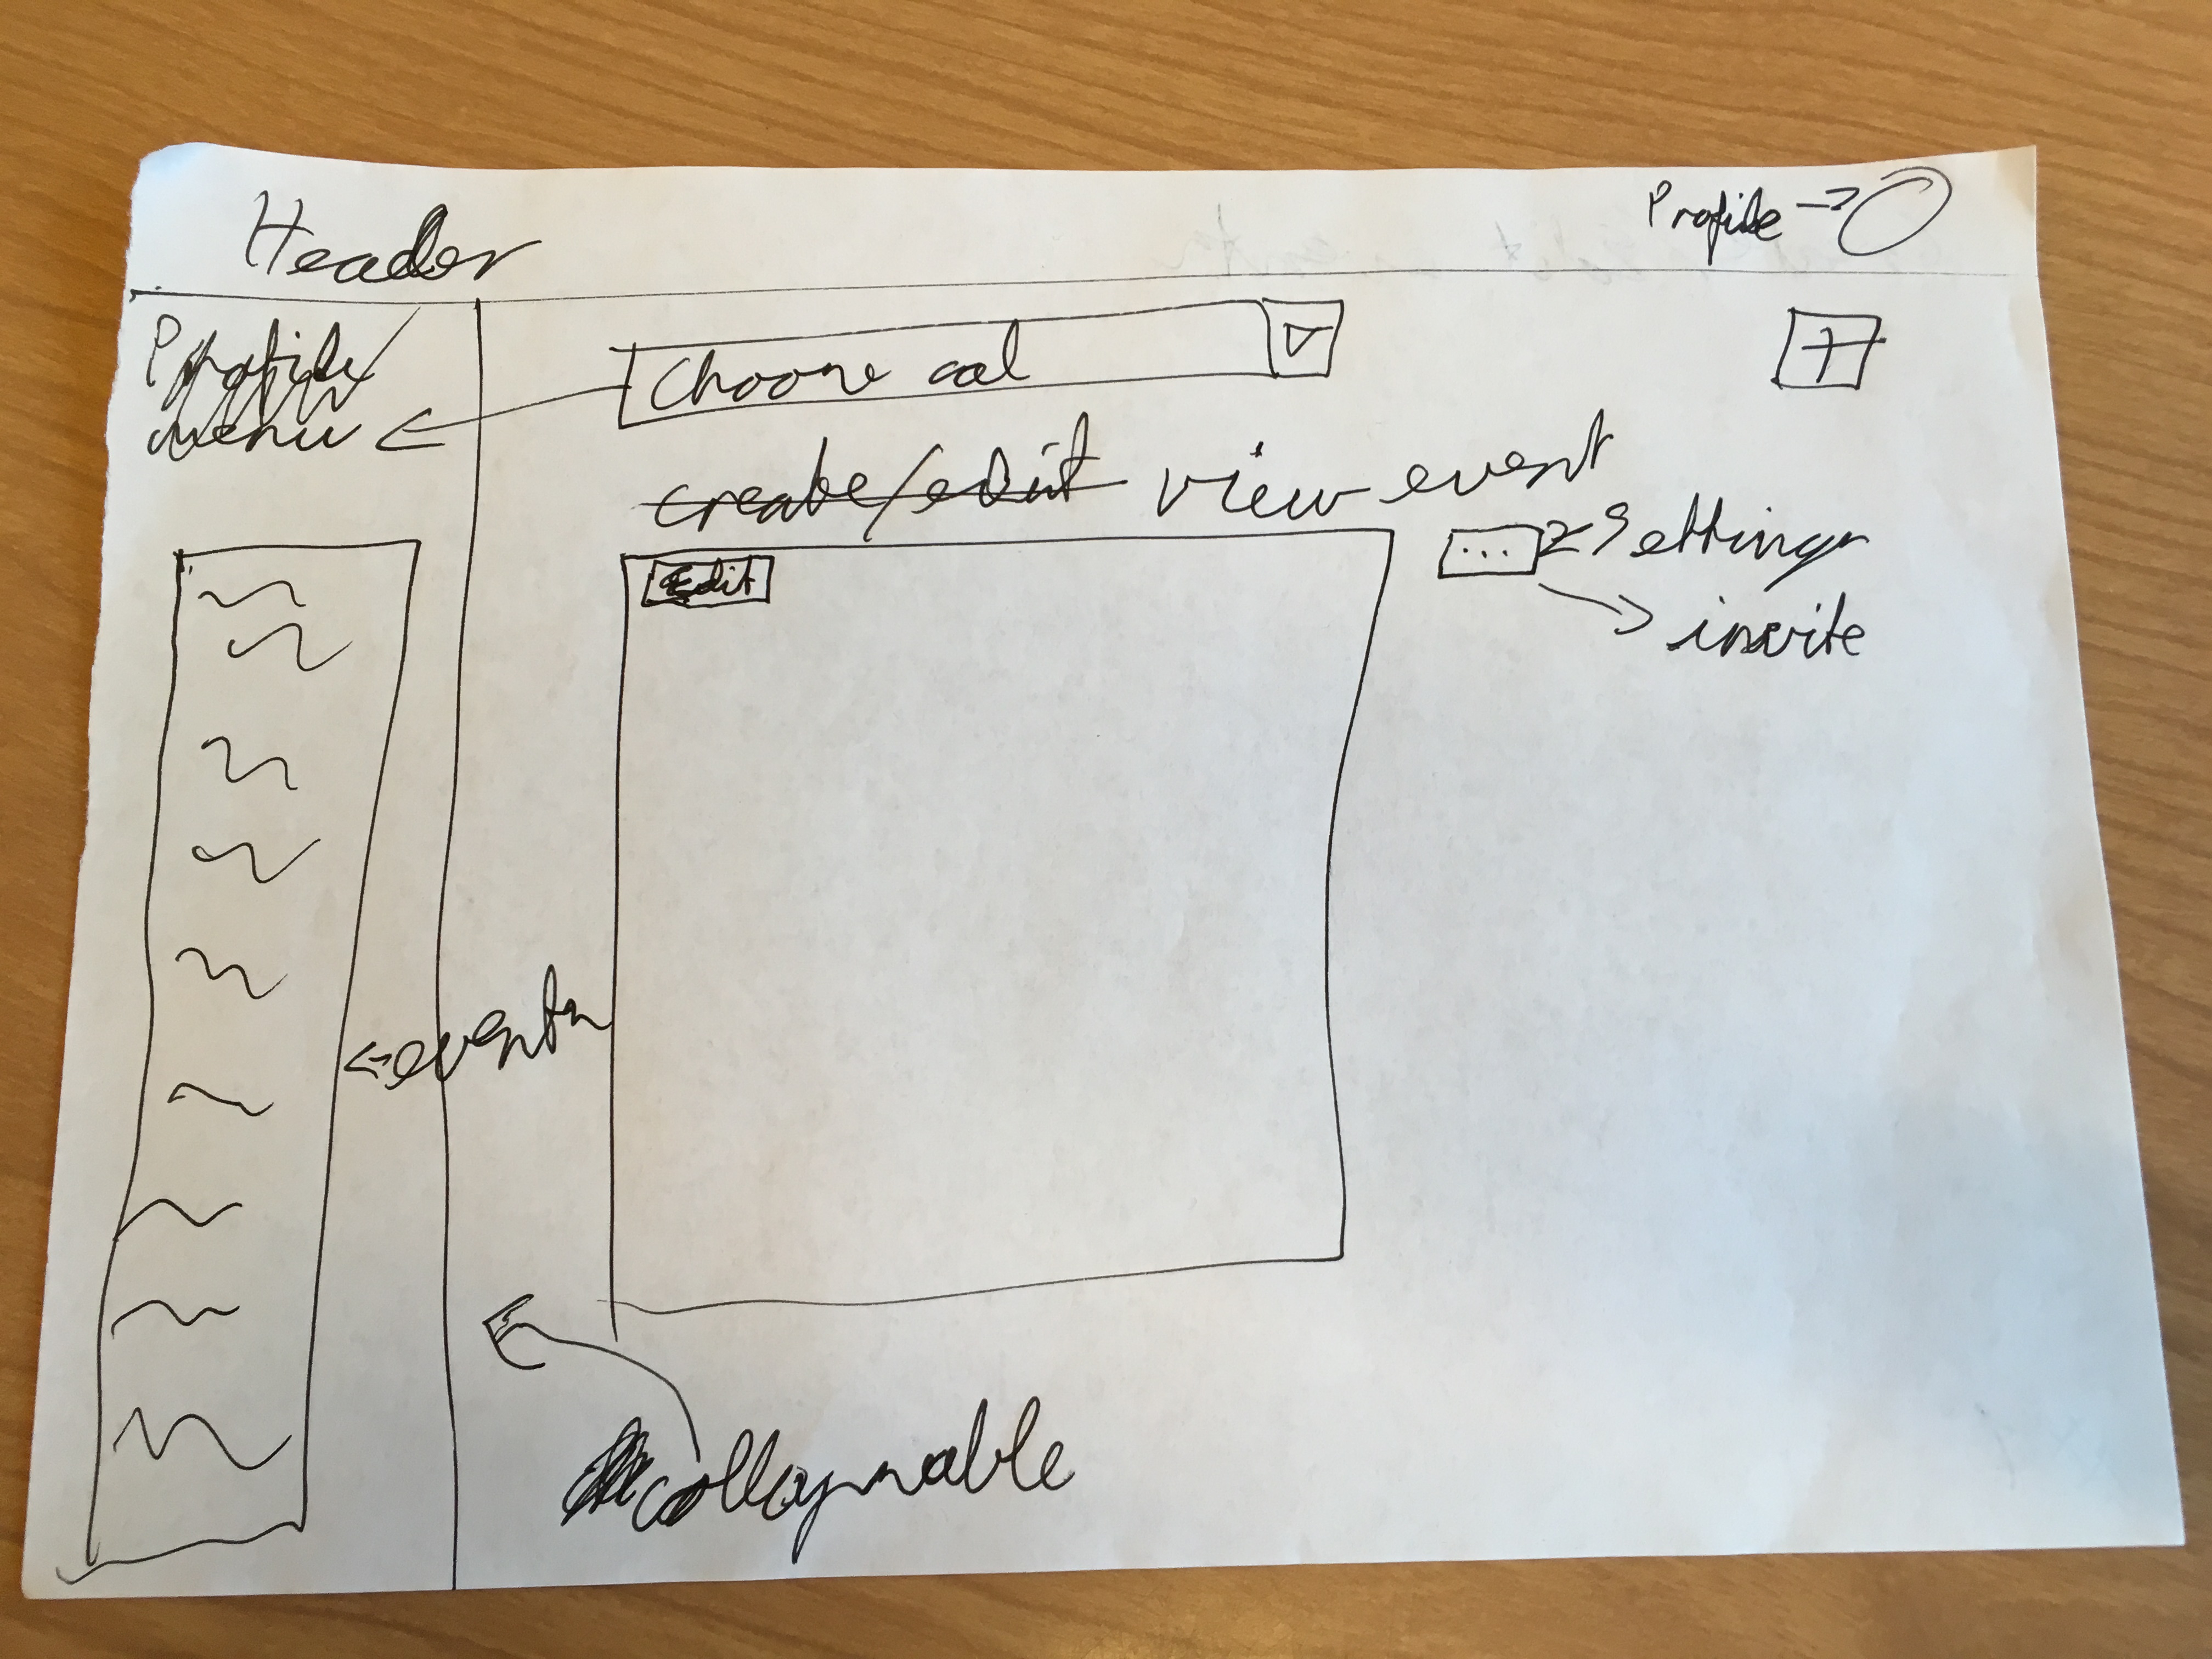 Header
Profile →
menu ←
Choose cal
+
create/edit view event
Edit
... ← Settings
→ invite
← events
collapsable